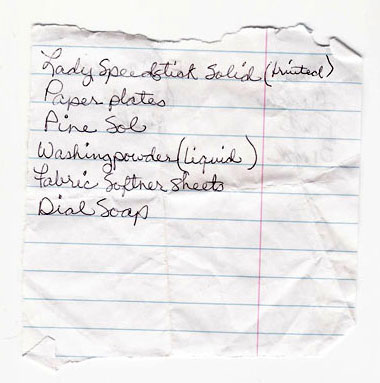 Lady Speedstick Solid (Limited)
Paper plates
Pine Sol
Washingpowder (liquid)
Fabric Softner Sheets
Dial Soap